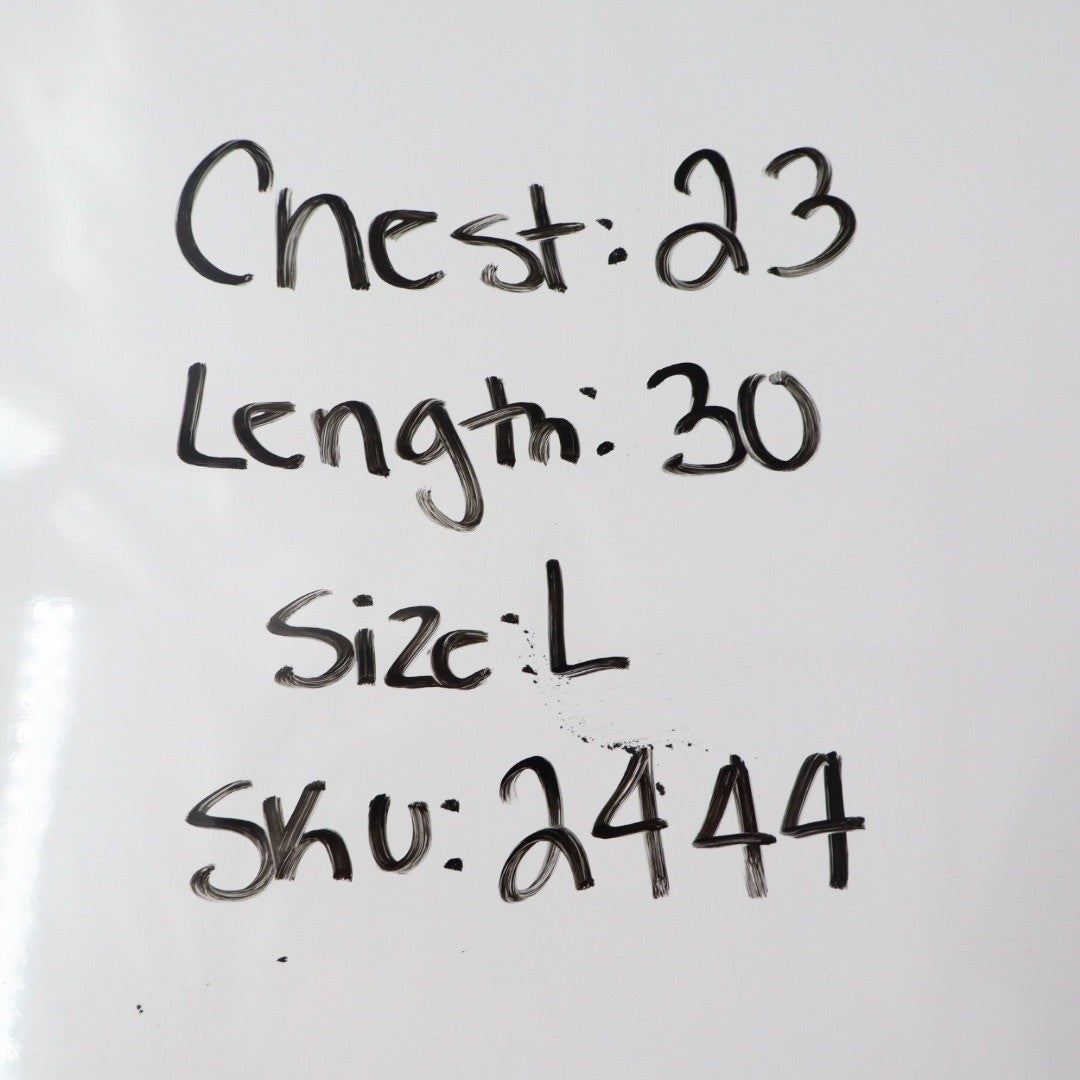 Chest: 23
Length: 30
Size: L
Sku: 2444